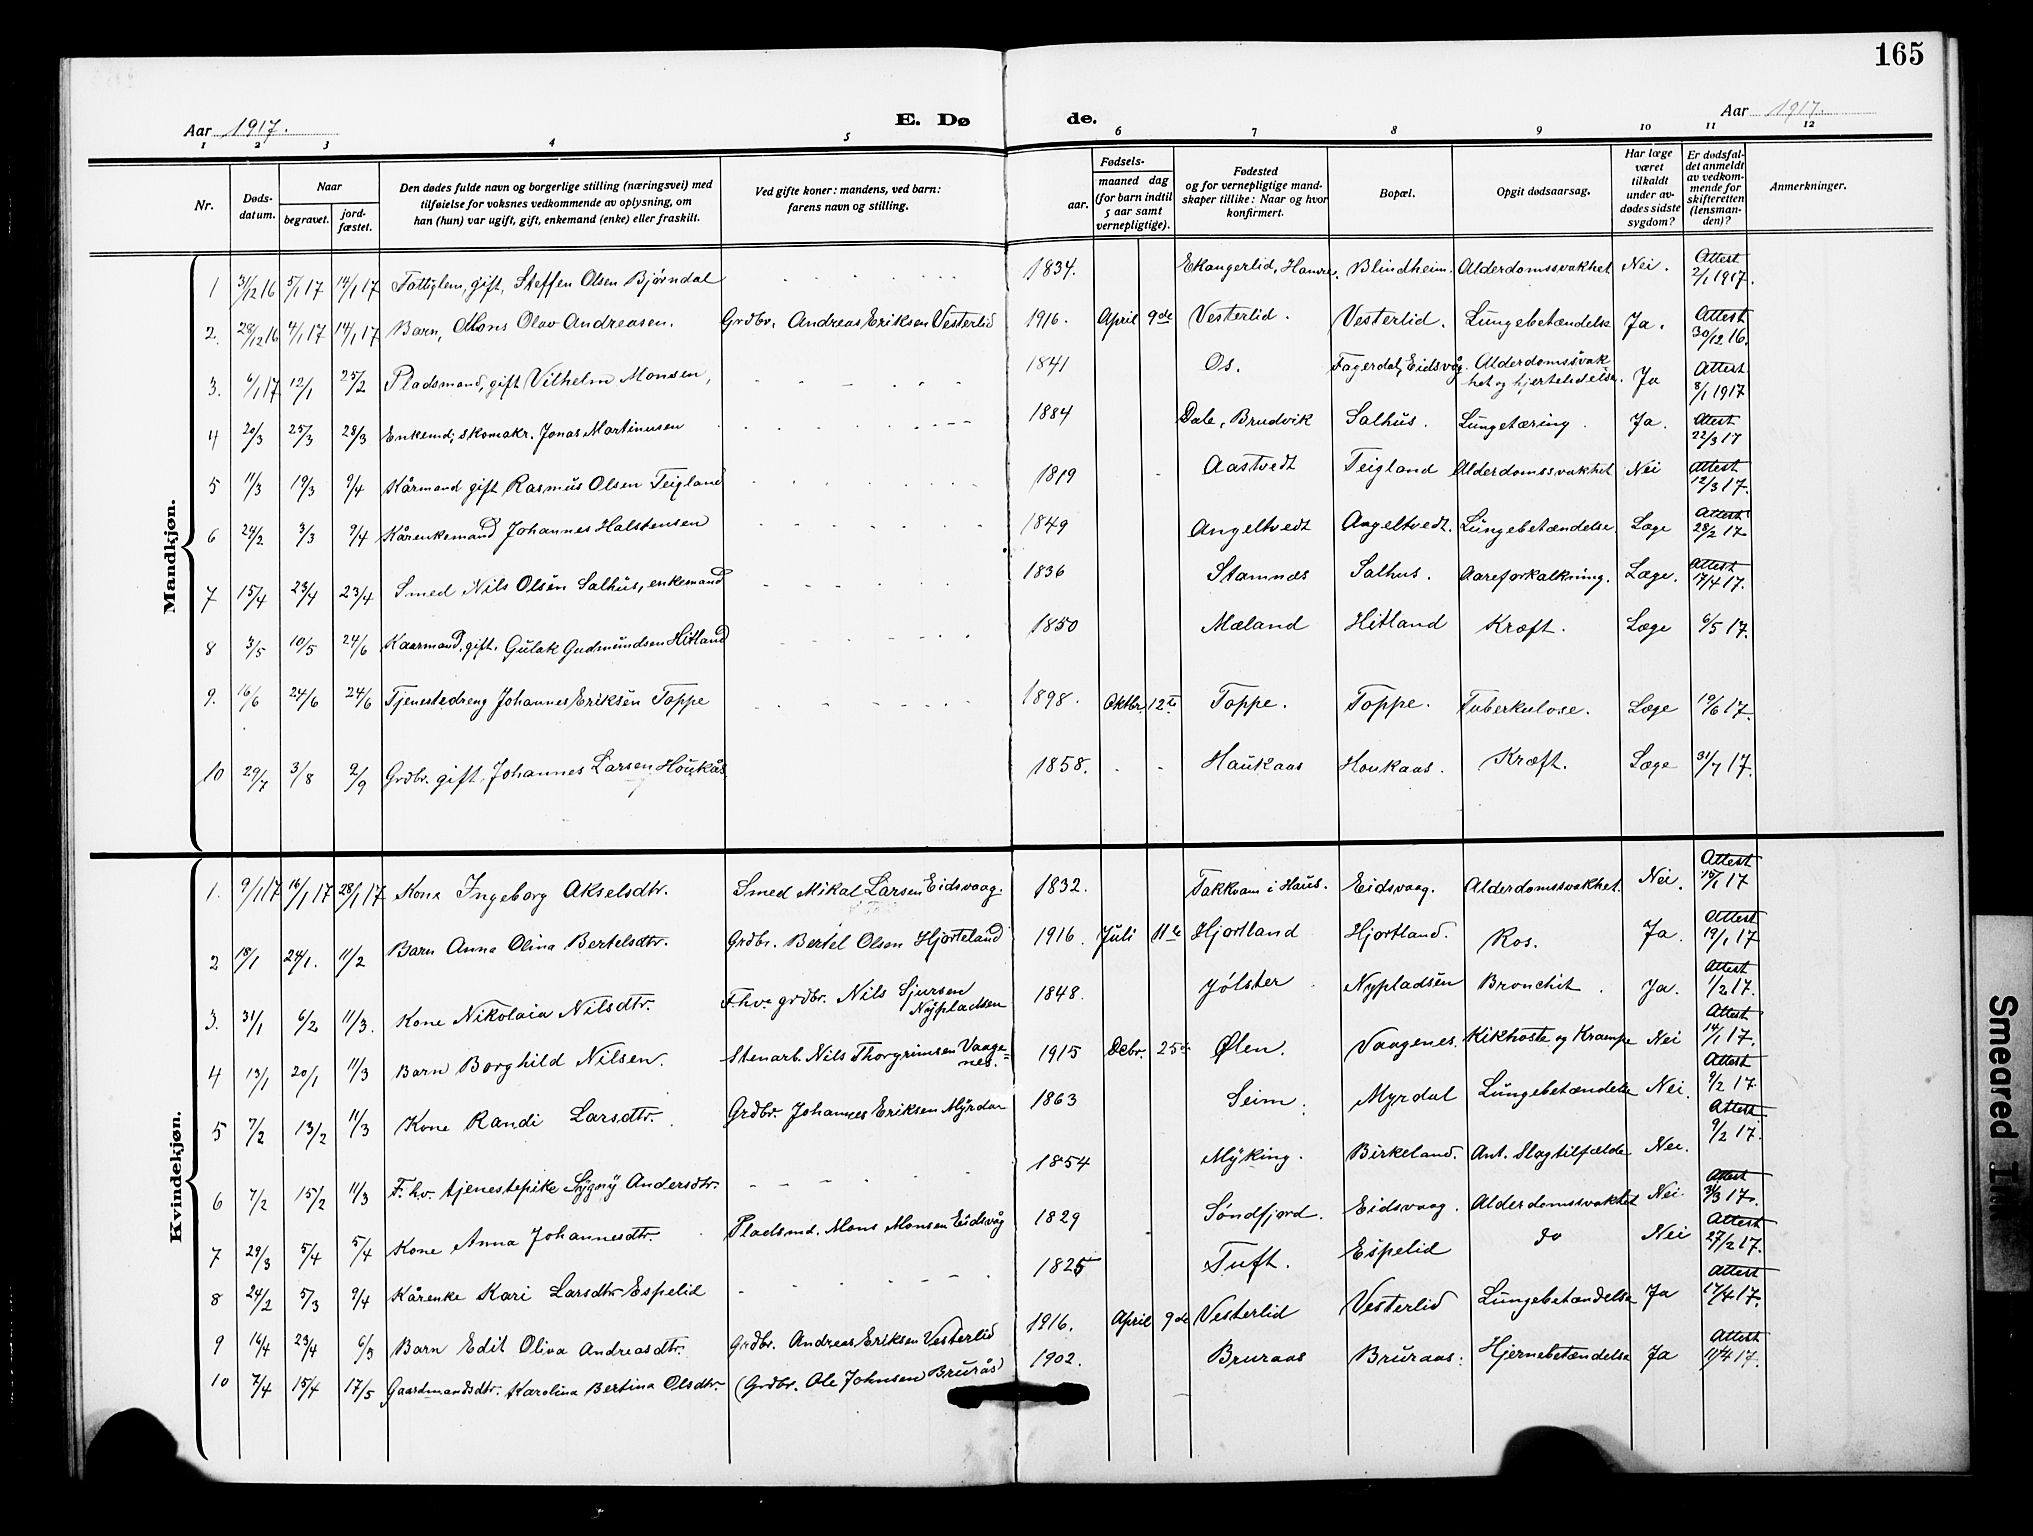 165
Aar 1917.
E. Dø de.
Aar 1917.
1 2 3 4 5 6 7 8 9 10 11 12
Nr.
Døds-
datum.
Naar
begravet.
jord-
fæstet.
Den dødes fulde navn og borgerlige stilling (næringsvei) med
tilføielse for voksnes vedkommende av oplysning, om
han (hun) var ugift, gift, enkemand (enke) eller fraskilt.
Ved gifte koner: mandens, ved barn:
farens navn og stilling.
Fødsels-
aar.
maaned dag
(for barn indtil
5 aar samt
vernepligtige).
Fødested
og for vernepligtige mand-
skaper tillike: Naar og hvor
konfirmert.
Bopæl.
Opgit dødsaarsag.
Har læge
været
tilkaldt
under av-
dødes sidste
sygdom?
Er dødsfal-
det anmeldt
av vedkom-
mende for
skifteretten
(lensman-
den)?
Anmerkninger.
Mandkjøn.
1 31/12 16 5/1 17 14/1 17 Fattiglem, gift, Steffen Olsen Bjørndal 1834. Ekangerlid, Hamre. Blindheim. Alderdomssvakhet Nei. Attest 2/1 1917.
2. 28/12 16 4/1 17 14/1 17 Barn, Mons Olav Andreasen. Grdbr. Andreas Eriksen Vesterlid 1916. April 9de Vesterlid. Vesterlid. Lungebetændelse Ja. Attest 30/12 16.
3. 6/1 17 12/1 25/2 Pladsmand, gift Vilhelm Monsen, 1841 Os. Fagerdal, Eidsvåg. Alderdomssvak
het og hjertelidelse. Ja Attest 8/1 1917
4 20/3 25/3 28/3 Enkemd, skomakr. Jonas Martinusen 1884 Dale, Brudvik Salhus. Lungetæring. Ja. Attest 22/3 17
5 11/3 19/3 9/4 Kårmand gift Rasmus Olsen Teigland 1819 Aastvedt Teigland Alderdomssvakhet Nei Attest 12/3 17.
6 24/2 3/3 9/4 Kårenkemand Johannes Halstensen 1849 Angeltvedt Angeltvedt. Lungebetændelse. Læge Attest 28/2 17
7 15/4 23/4 23/4 Smed Nils Olsen Salhus, enkemand 1836 Stamnes Salhus. Aareforkalkning. Læge. Attest 17/4 17.
8 3/5 10/5 24/6 Kaarmand, gift. Gulak Gudmundsen Hitland 1850 Mæland Hitland Kræft. Læge 6/5 17.
9. 16/6 24/6 24/6 Tjenestedreng Johannes Eriksen Toppe 1898. Oktbr. 12te Toppe. Toppe. Tuberkulose. Læge 19/6 17.
10 29/7 3/8 2/9 Grdbr. gift. Johannes Larsen Houkås 1858. Haukaas Houkaas. Kræft. Læge 31/7 17.
Kvindekjøn.
1. 9/1 17 16/1 17 28/1 17 Kone Ingeborg Akselsdtr. Smed Mikal Larsen Eidsvaag. 1832. Takkvam i Haus. Eidsvaag. Alderdomssvakhet. Nei. Attest 15/1 17
2 18/1 24/1. 11/2 Barn Anna Olina Bertelsdtr. Grdbr. Bertel Olsen Hjorteland 1916. Juli 11te Hjortland Hjortland. Ros. Ja. Attest 19/1 17
3. 31/1 6/2 11/3. Kone Nikolaia Nilsdtr. F.hv. grdbr. Nils Sjursen
Nypladsen 1848. Jølster Nypladsen Bronchit. Ja. Attest 1/2 17.
4 13/1 20/1 11/3 Barn Borghild Nilsen. Stenarb. Nils Thorgrimsen Vaage=
nes. 1915 Debr. 25de Ølen. Vaagenes. Kikhoste og Krampe Nei Attest 14/1 17.
5 7/2 13/2 11/3 Kone Randi Larsdtr. Grdbr. Johannes Eriksen Myrdal 1863 Seim. Myrdal Lungebetændelse Nei. Attest 9/2 17.
6 7/2 15/2 11/3 F.hv. tjenestepike Sygny Andersdtr. 1854 Myking. Birkeland. Ant. Slagtilfælde Nei. Attest 9/2 17.
7 29/3 5/4 5/4 Kone Anna Johannesdtr. Pladsmd. Mons Monsen Eidsvåg 1829 Søndfjord. Eidsvaag. Alderdomssvakhet Nei. Attest 31/3 17.
8 24/2 5/3 9/4 Kårenke Kari Larsdtr Espelid 1825 Tuft. Espelid do Nei Attest 27/2 17.
9 16/4 23/4 6/5 Barn Edit Oliva Andreasdtr. Grdbr. Andreas Eriksen Vesterlid 1916. April 9de Vesterlid Vesterlid Lungebetændelse Ja Attest 17/4 17.
10 7/4 15/4 17/5 Gaardmandsdtr. Karolina Bertina Olsdtr. (Grdbr. Ole Johnsen Brurås) 1902. Bruraas Bruraas. Hjernebetændelse Ja Attest 11/4 17.
Smeared Ink